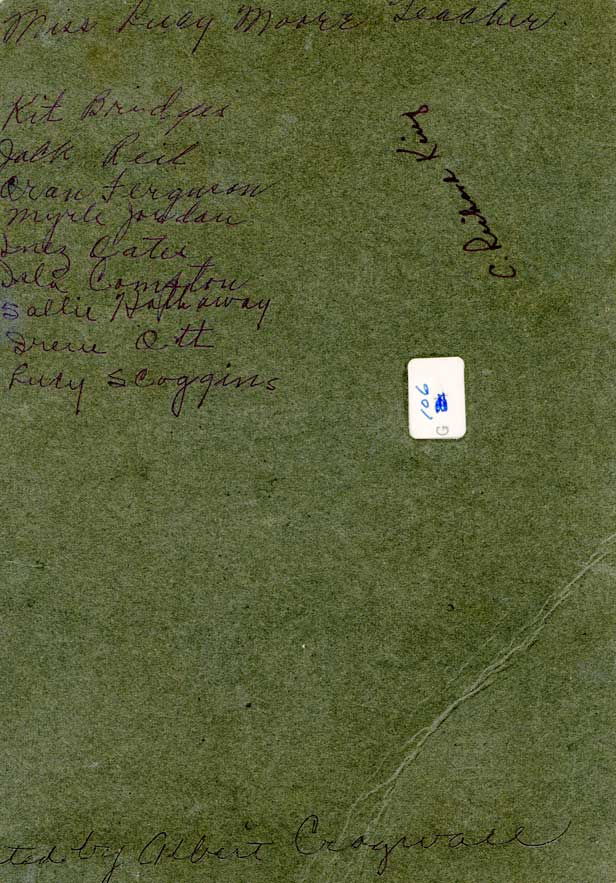 Miss Lucy Moore Teacher.
Kit Bridges
Jack Reid
Oran Ferguson
Myrle Jordan
Inez Cates
Compton
Sallie Hathaway
Irene Ott
Lucy Scoggins
C. King
106
G
ted by Albert